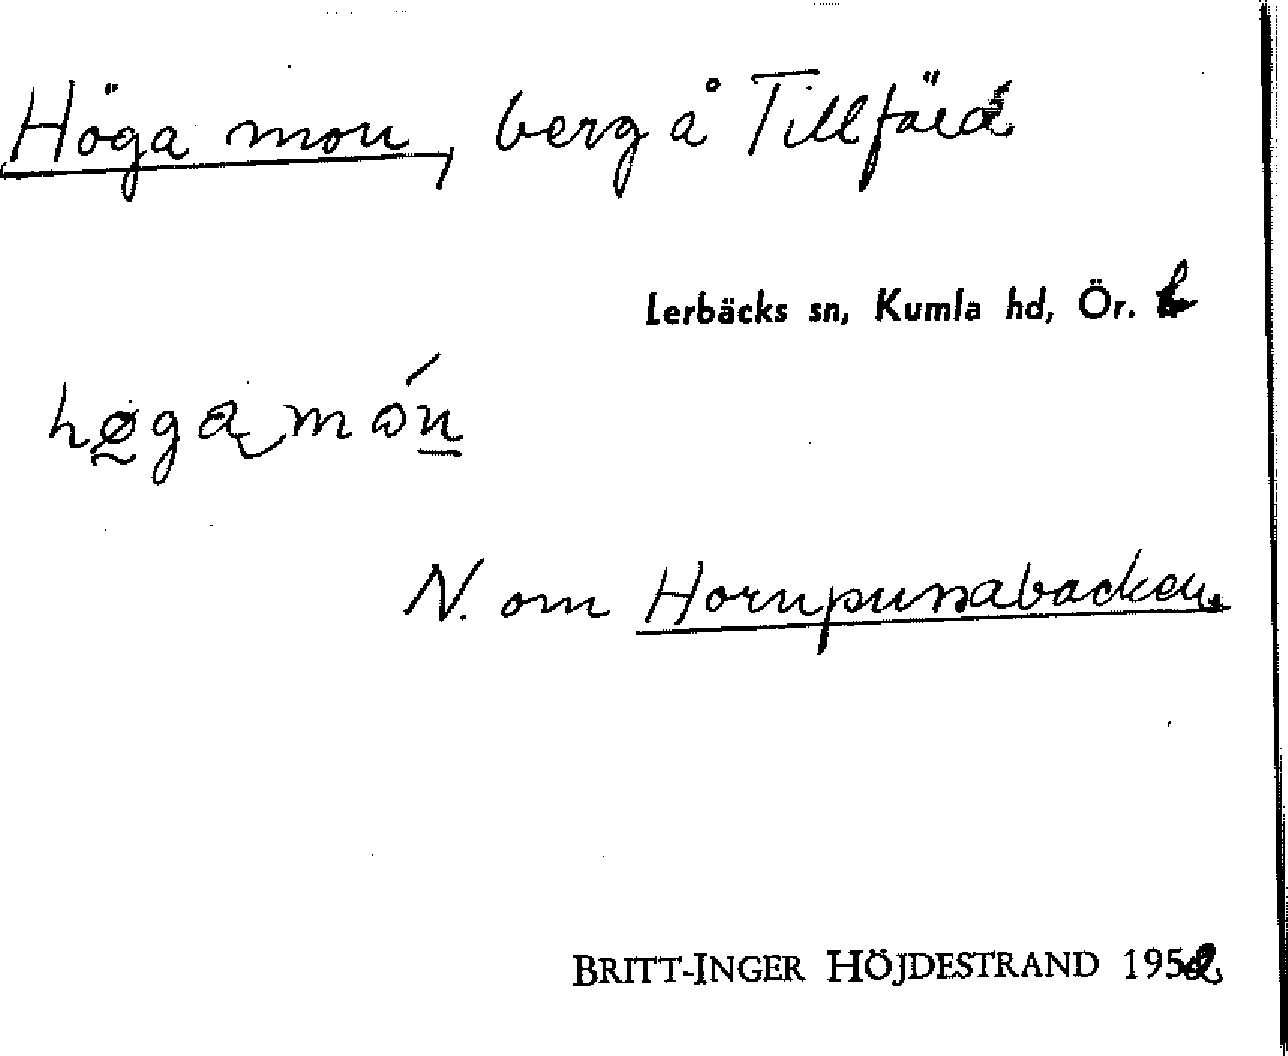 Höga mon, berg å Tillfärd
Lerbäcks sn, Kumla hd, Ör. L
høga mo̱n
N. om Hornpunsabacken.
BRITT-INGER HÖJDESTRAND 1952